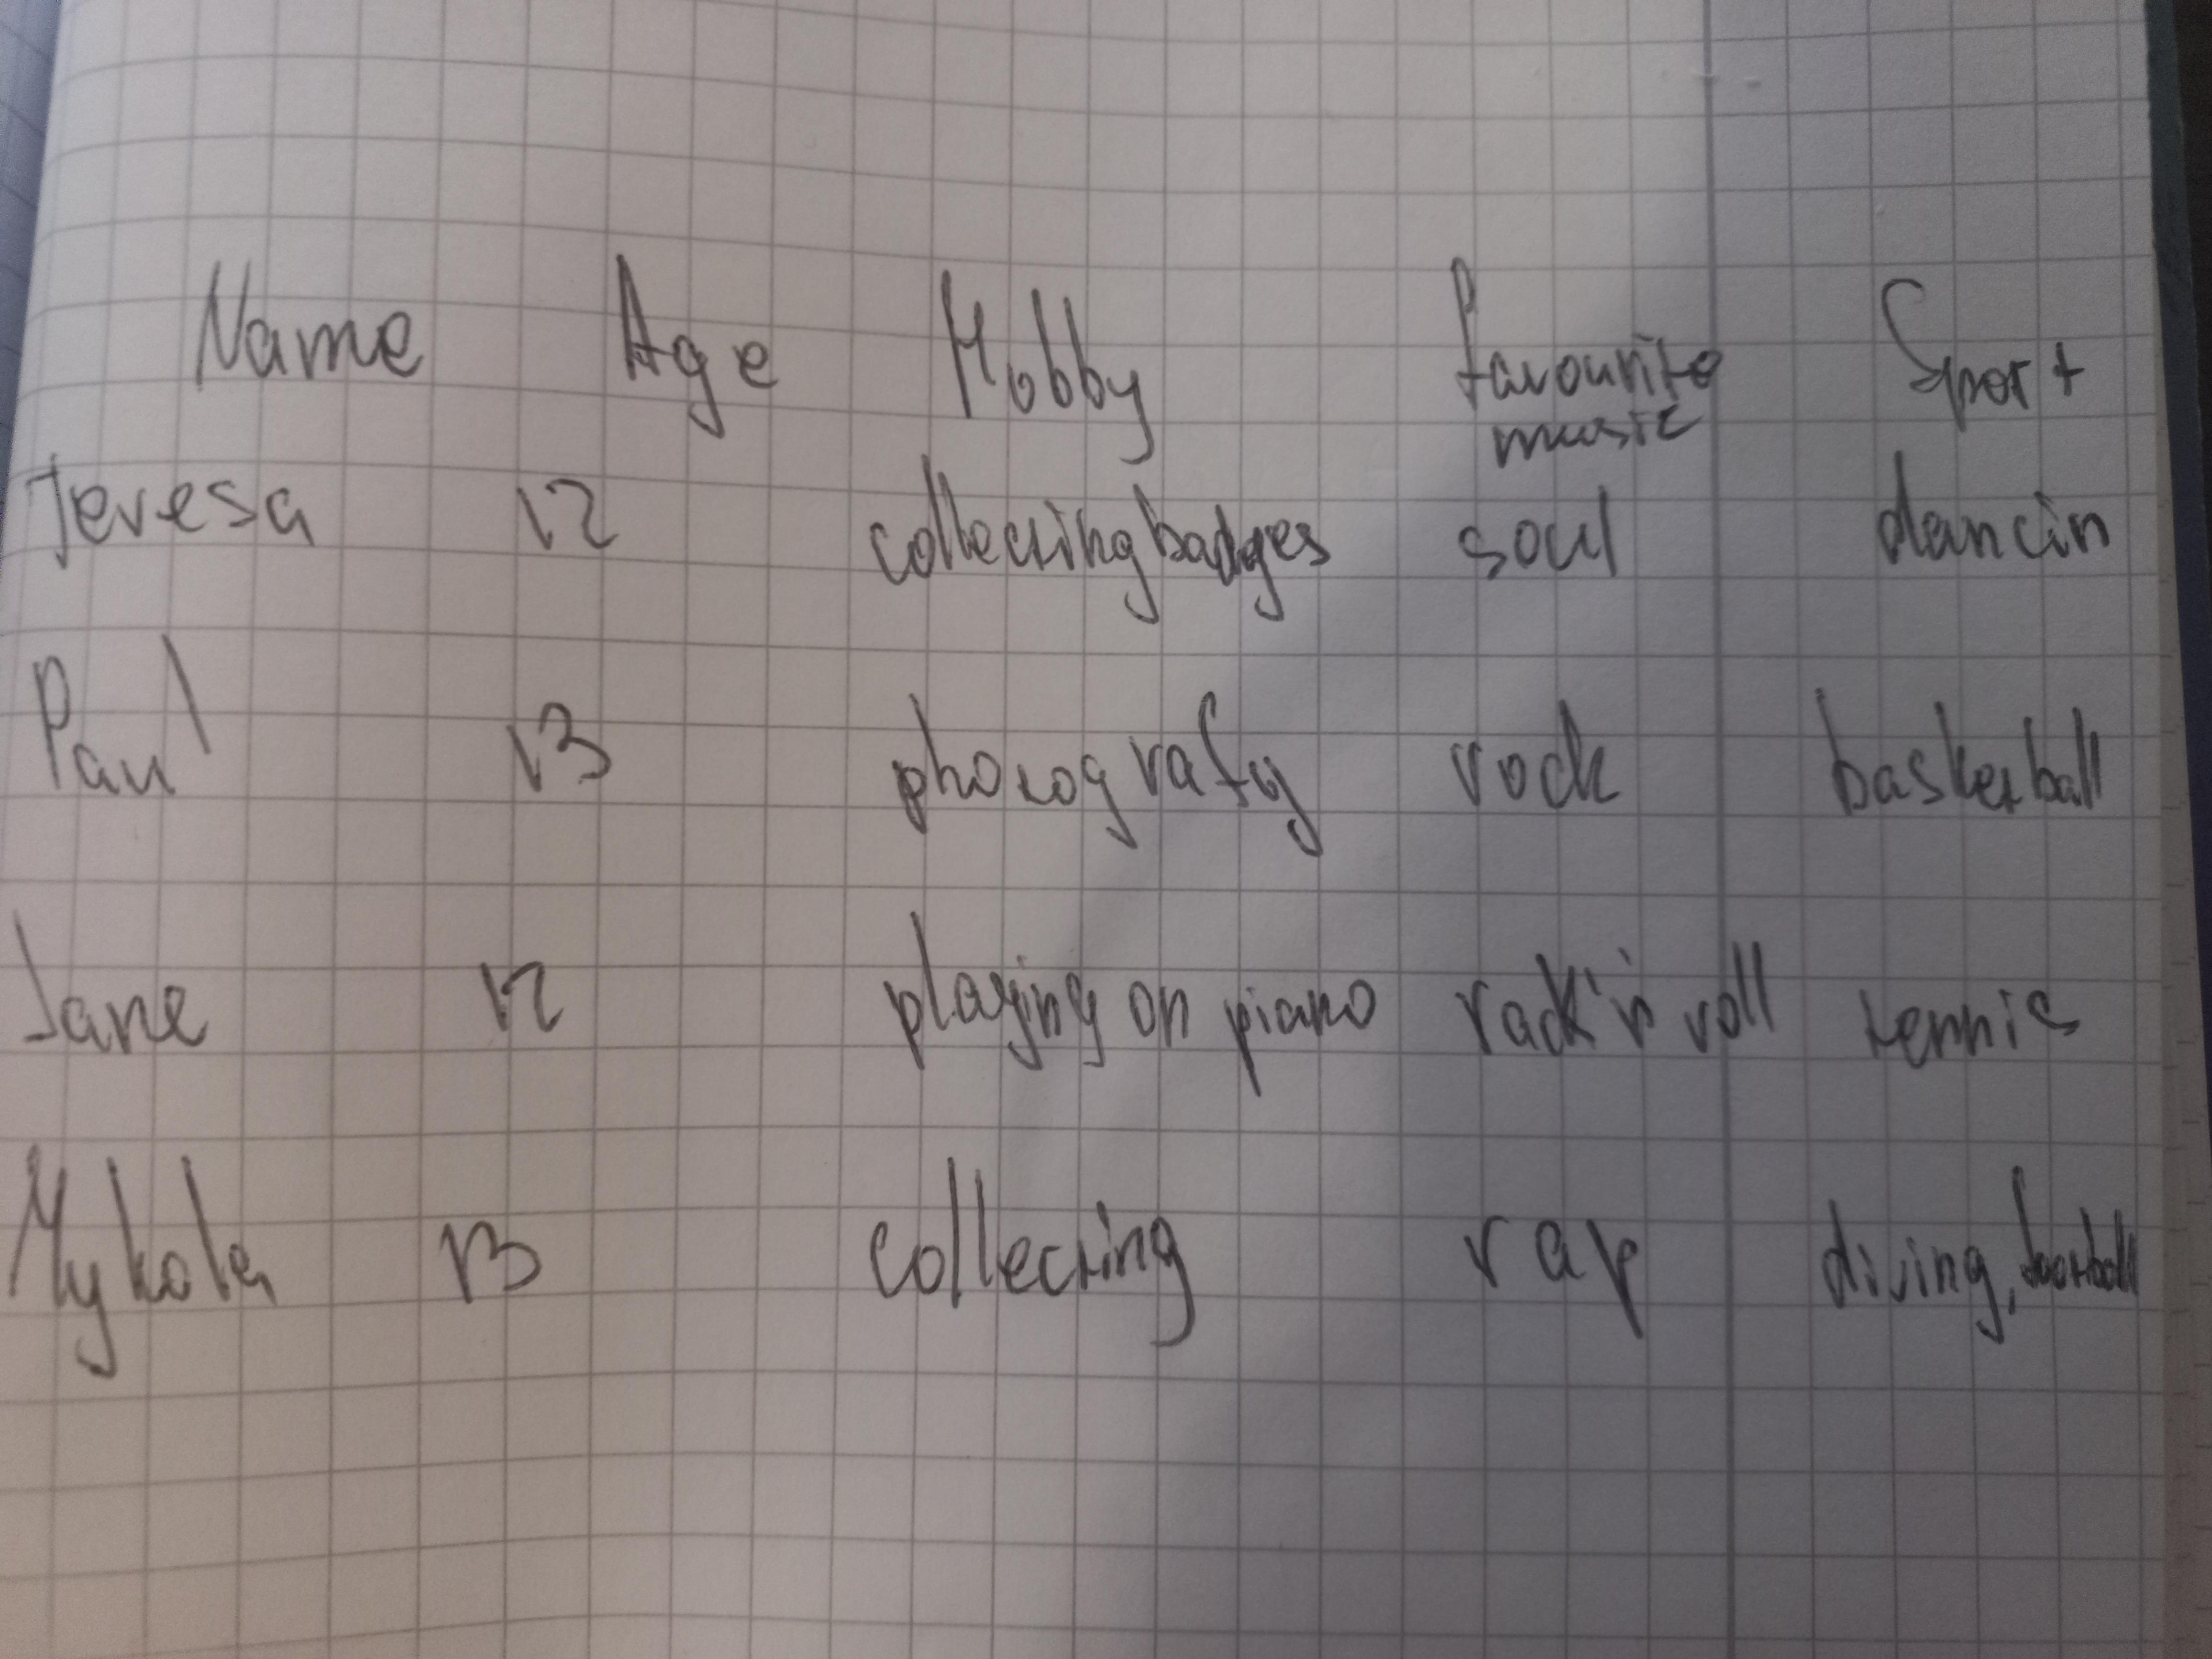 Name Age Hobby favourite Sport
music
Teresa 12 collecting badges soul dancin
Paul 13 photografy rock basketball
Jane 12 playing on piano rack'n roll tennis
Mykola 13 collecting rap diving, football